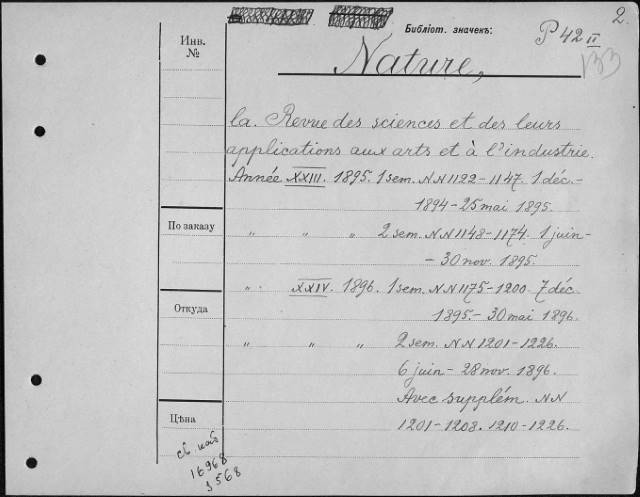 2.
Библіот. значекъ: P 42 II
133
Инв.
№
Nature,
la. Revue des sciences et des leurs
applications aux arts et à l'industrie.
Année XXIII. 1895. 1 sem. NN 1122-1147. 1 déc.-
1894-25 mai 1895.
По заказу
" " " 2 sem. NN 1148-1174. 1 juin-
- 30 nov. 1895.
". XXIV. 1896. 1 sem. NN 1175-1200. 7 déc.
Откуда
1895.-30 mai 1896.
" " " 2 sem. NN 1201-1226.
6 juin-28 nov. 1896.
Avec supplém. NN
Цѣна
1201-1208. 1210-1226.
16968